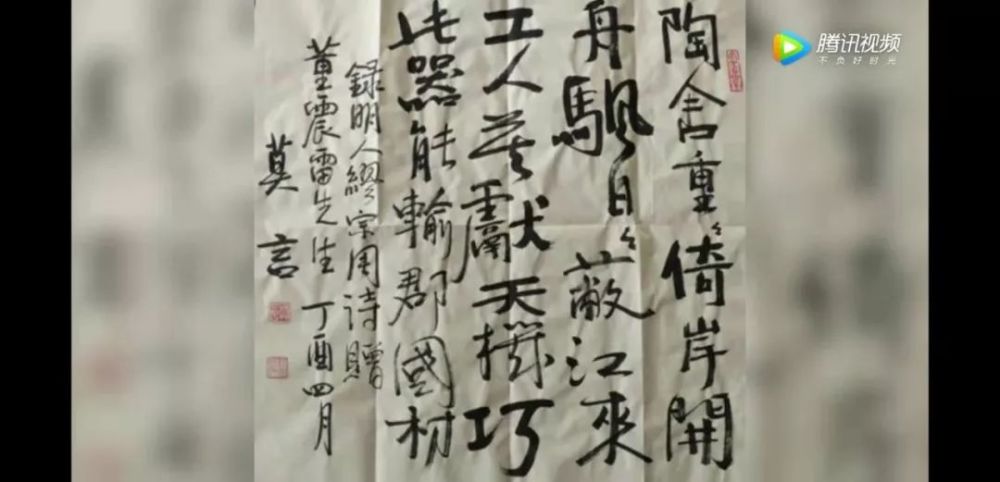 陶舍重々倚岸開
舟颿日々蔽江來
工人莫獻天機巧
此器能輸郡國材
録明人繆宗周诗贈
董震雷先生 丁酉四月
莫言
腾讯视频
不负好时光